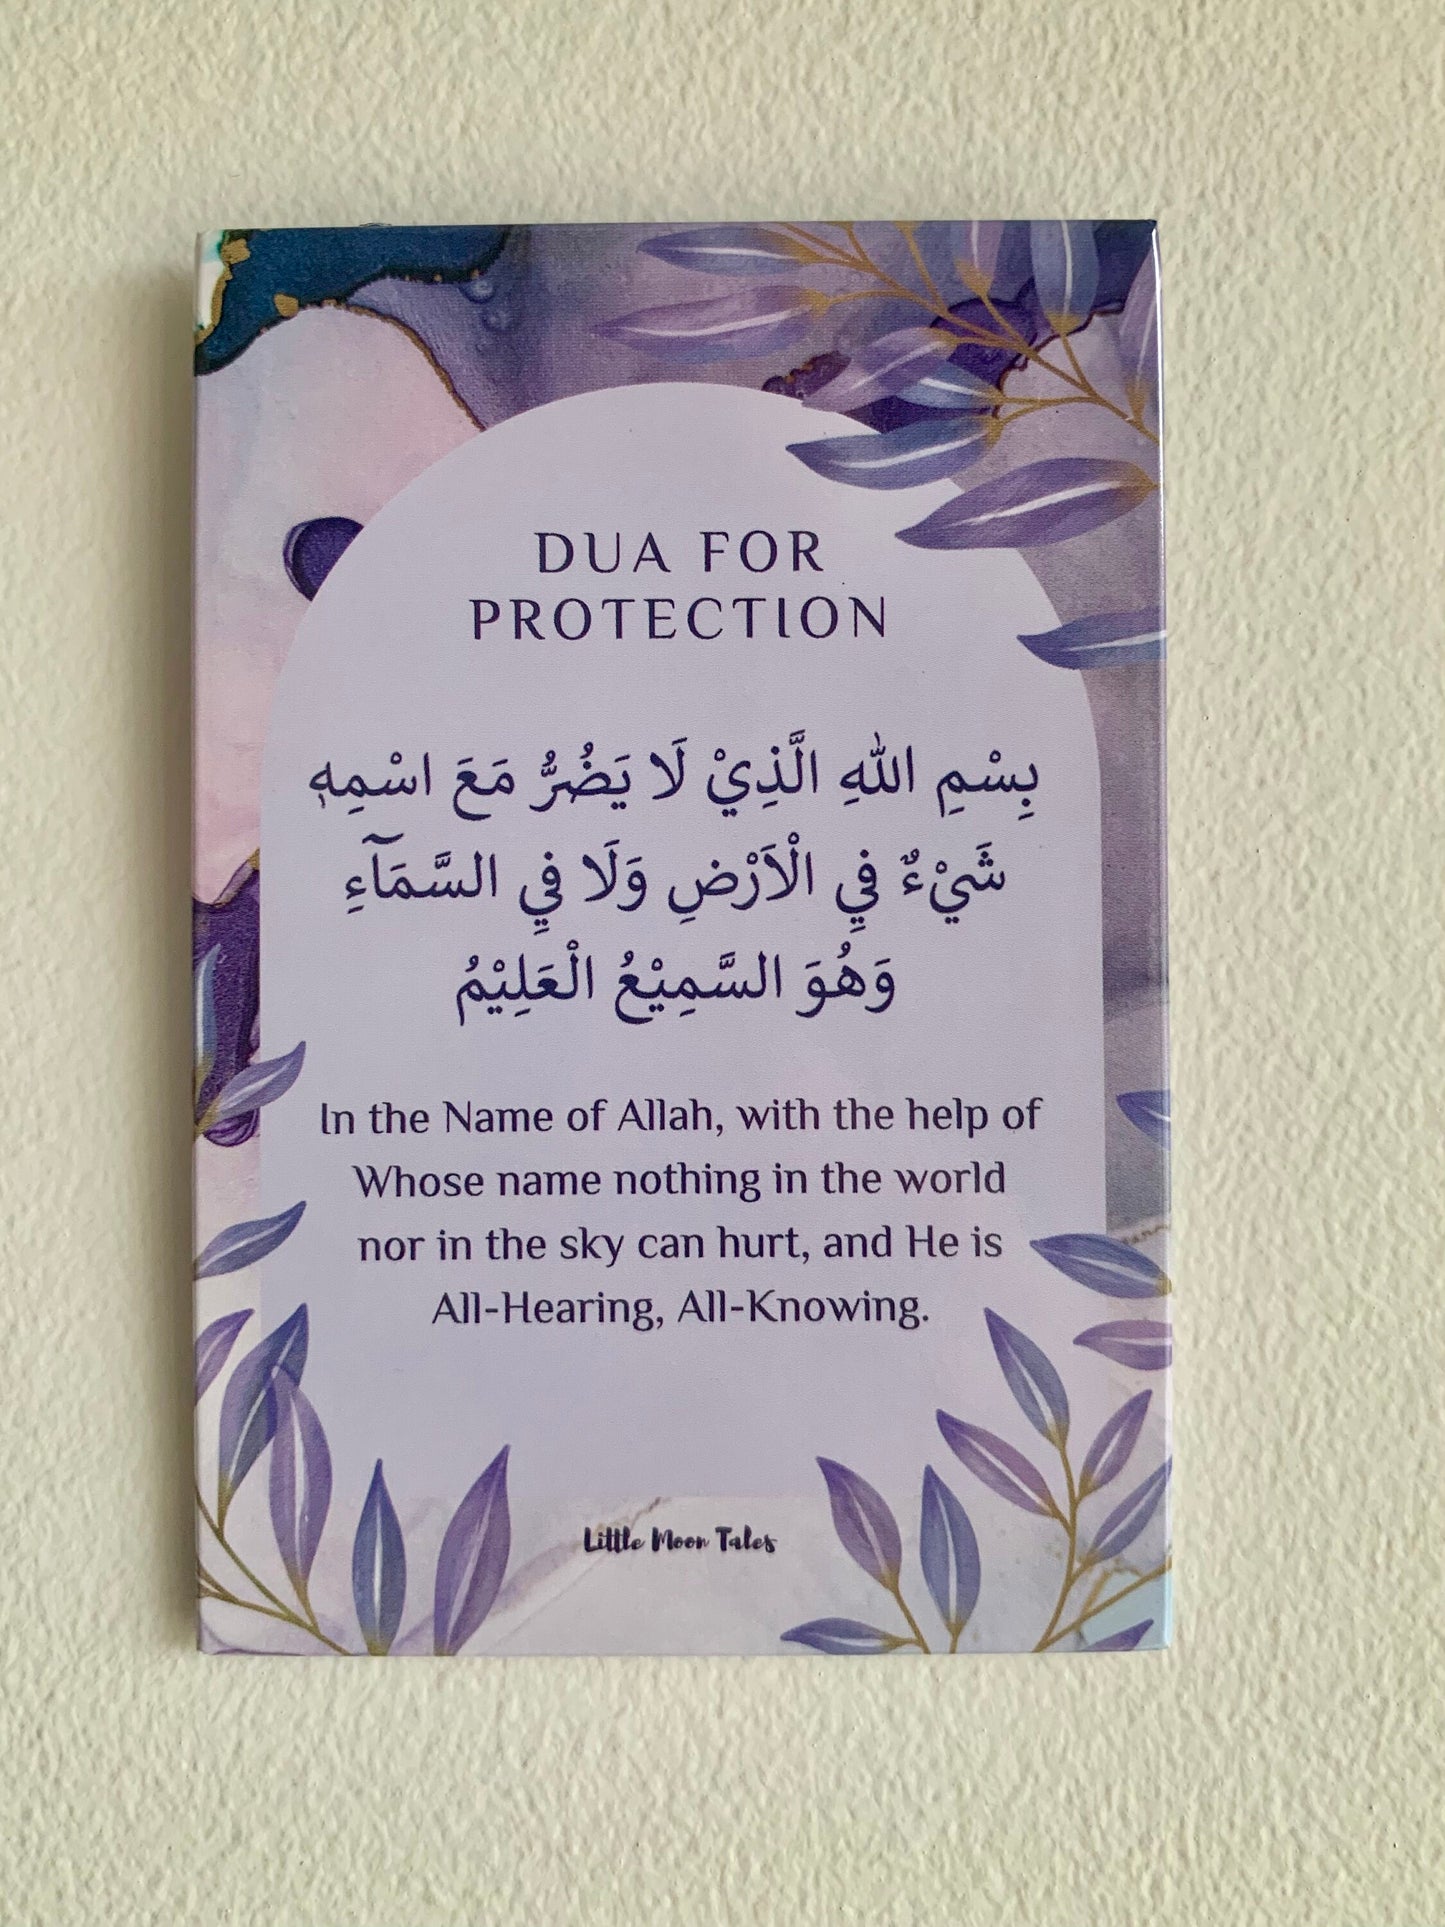 DUA FOR
PROTECTION
بِسْمِ اللهِ الَّذِيْ لَا يَضُرُّ مَعَ اسْمِهٖ
شَيْءٌ فِي الْاَرْضِ وَلَا فِي السَّمَآءِ
وَهُوَ السَّمِيْعُ الْعَلِيْمُ
In the Name of Allah, with the help of
Whose name nothing in the world
nor in the sky can hurt, and He is
All-Hearing, All-Knowing.
Little Moon Tales